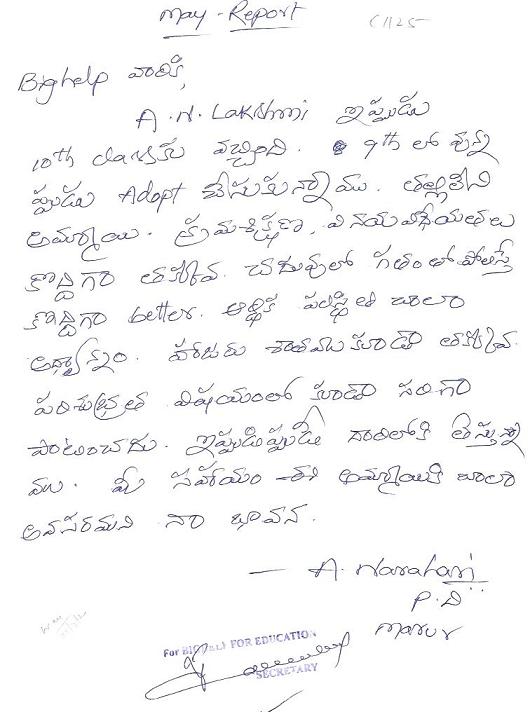 May - Report
C1125
Bighelp వారికి,
A.N. Lakshmi ఇప్పుడు
10th classకు వచ్చింది. 9th లో వున్న
ప్పుడు Adopt చేసుకున్నాము. తల్లిలేని
అమ్మాయి. క్రమశిక్షణ, వినయవిధేయతలు
కొద్దిగా తక్కువ. చదువులో గతంతో పోలిస్తే
కొద్దిగా better. ఆర్థిక పరిస్థితి చాలా
అధ్వాన్నం. హాజరు శాతము కూడా తక్కువ.
పరిశుభ్రత విషయంలో కూడా సరిగా
పాటించదు. ఇప్పుడిప్పుడే దారిలోకి తెస్తున్నా
ము. మీ సహాయం ఈ అమ్మాయికి చాలా
అవసరమని నా భావన.
— A. Narahari
P.D
Marur
For BIGHELP FOR EDUCATION
SECRETARY